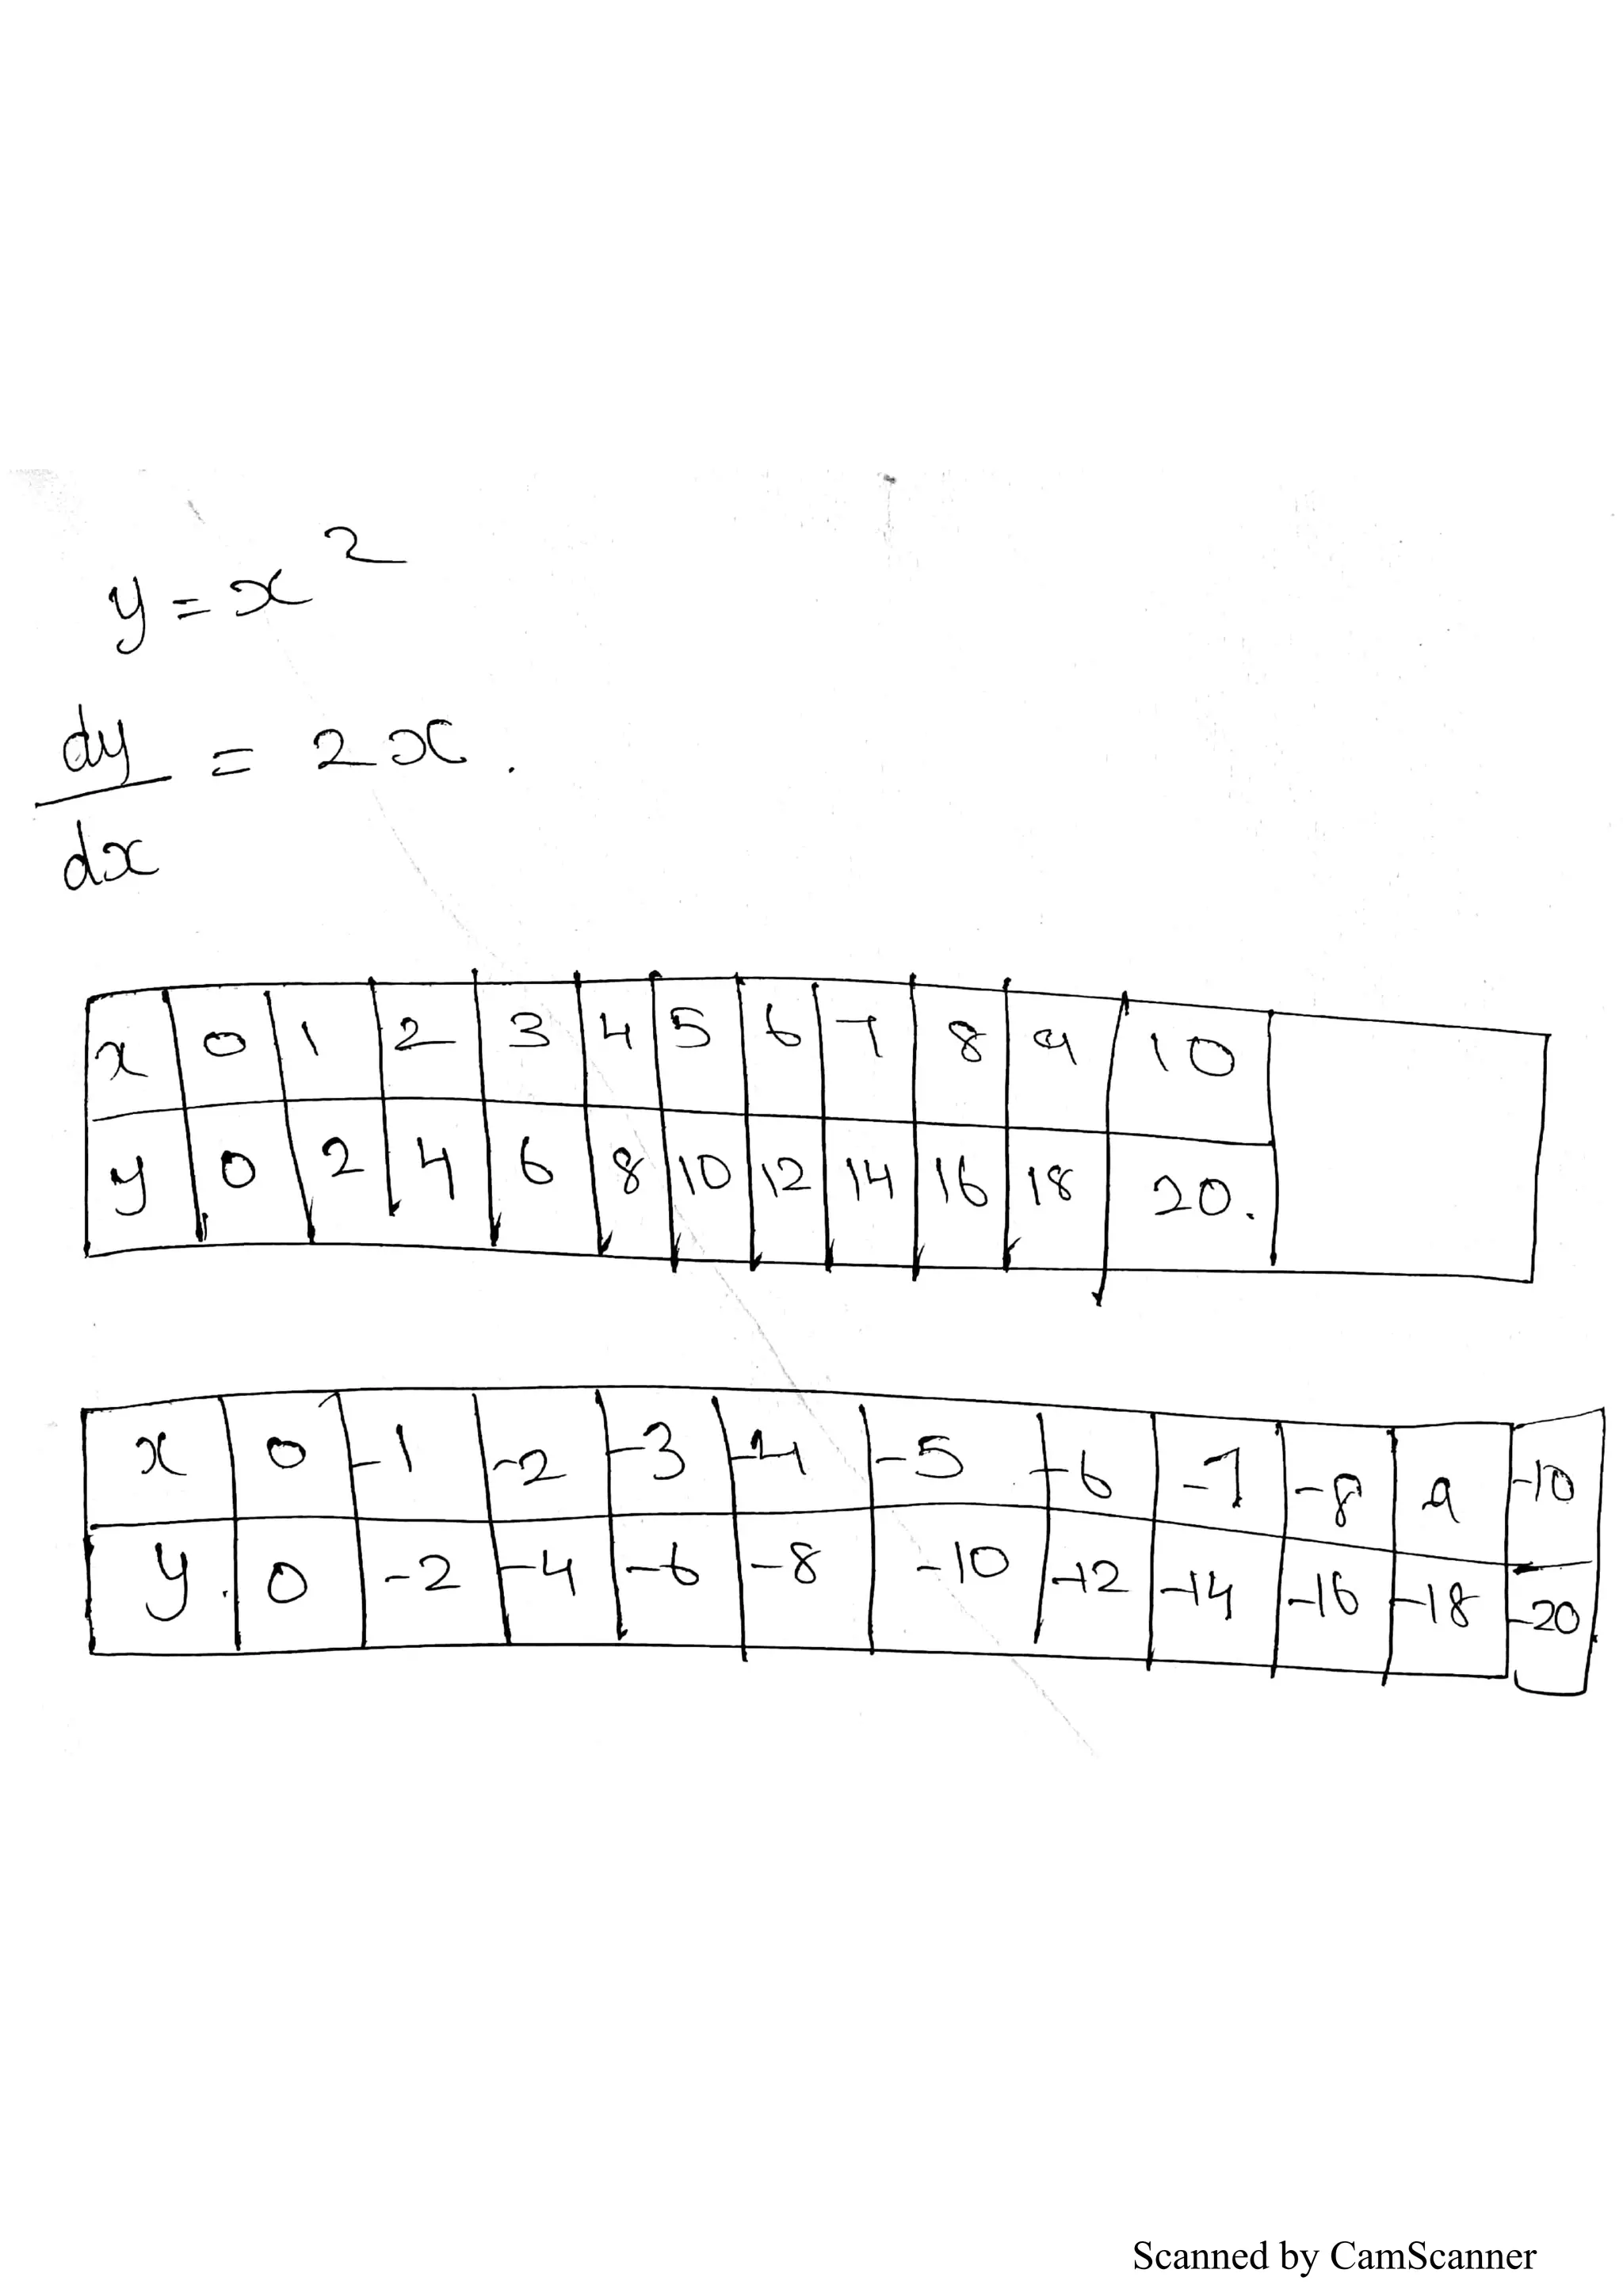 y = x²
dy/dx = 2x.
x 0 1 2 3 4 5 6 7 8 9 10
y 0 2 4 6 8 10 12 14 16 18 20.
x 0 -1 -2 -3 -4 -5 -6 -7 -8 9 -10
y. 0 -2 -4 -6 -8 -10 -12 -14 -16 -18 -20
Scanned by CamScanner